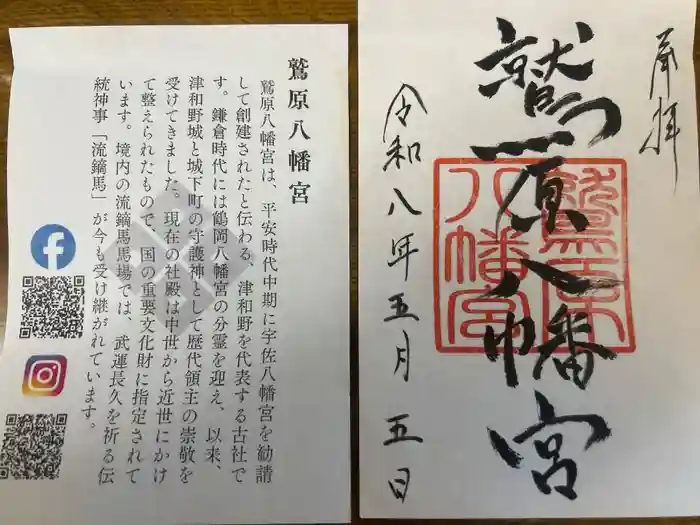 鷲原八幡宮
鷲原八幡宮は、平安時代中期に宇佐八幡宮を勧請
して創建されたと伝わる、津和野を代表する古社で
す。鎌倉時代には鶴岡八幡宮の分霊を迎え、以来、
津和野城と城下町の守護神として歴代領主の崇敬を
受けてきました。現在の社殿は中世から近世にかけ
て整えられたもので、国の重要文化財に指定されて
います。境内の流鏑馬馬場では、武運長久を祈る伝
統神事「流鏑馬」が今も受け継がれています。
奉拝
鷲原八幡宮
鷲原
八幡宮
令和八年五月五日